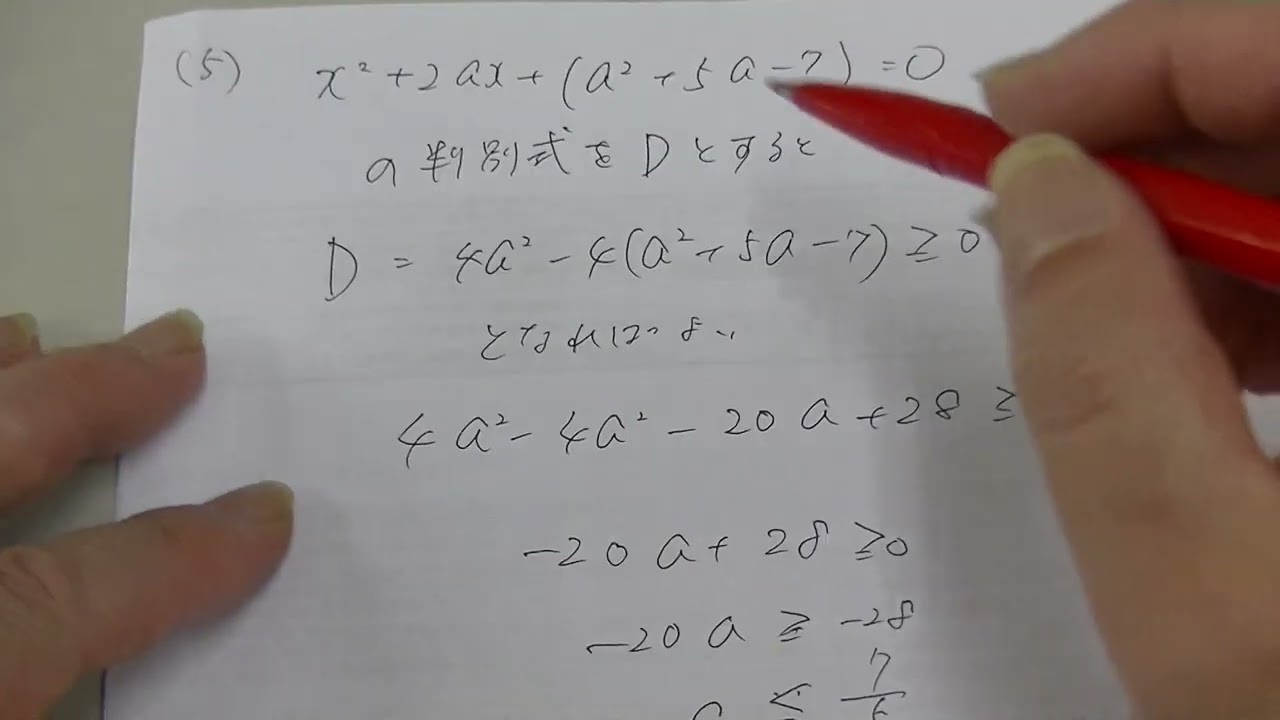 (5) x² + 2ax + (a² + 5a - 7) = 0
の判別式を D とすると
D = 4a² - 4(a² + 5a - 7) ≧ 0
となればよい
4a² - 4a² - 20a + 28 ≧
-20a + 28 ≧ 0
-20a ≧ -28
a ≦ 7/5